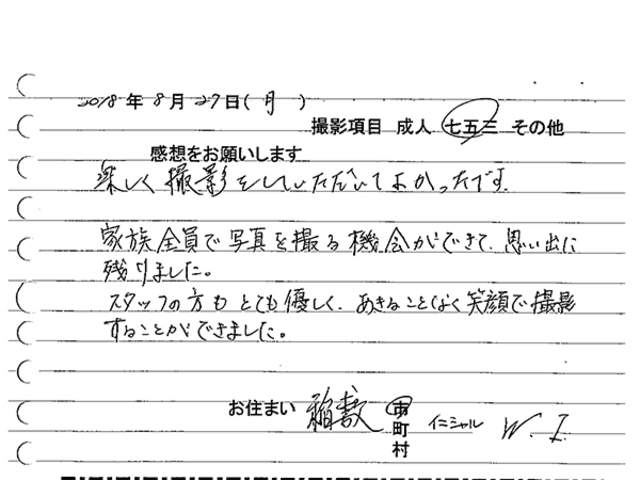 2018年8月27日(月)
撮影項目 成人 七五三 その他
感想をお願いします
楽しく撮影をしていただいてよかったです。
家族全員で写真を撮る機会ができて、思い出に
残りました。
スタッフの方もとても優しく、あきることなく笑顔で撮影
することができました。
お住まい 稲敷 市 町 村 イニシャル W. I.